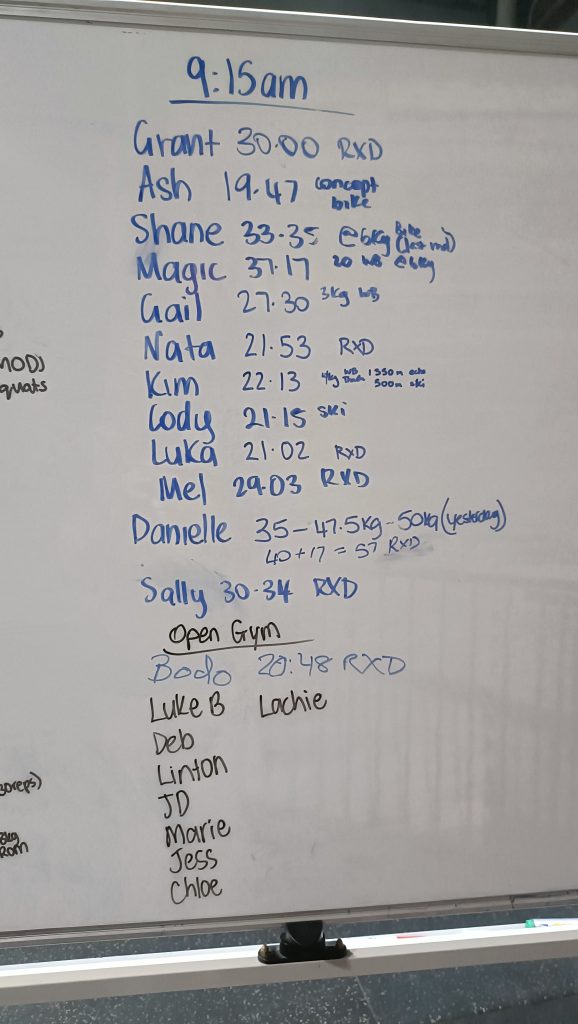 9:15am
Grant 30.00 RXD
Ash 19.47 concept bike
Shane 33.35 @6kg Bike (last rnd)
Magic 37.17 20 WB @6kg
Gail 27.30 3kg WB
Nata 21.53 RXD
MOD)
Kim 22.13 4kg WB 1350m echo 500m ski
quats
Cody 21.15 ski
Luka 21.02 RXD
Mel 29.03 RXD
Danielle 35-47.5kg-50kg (yesterday)
40+17 = 57 RXD
Sally 30.34 RXD
Open Gym
Bodo 20:48 RXD
Luke B Lachie
Deb
Linton
30reps)
JD
Marie
Jess
Chloe